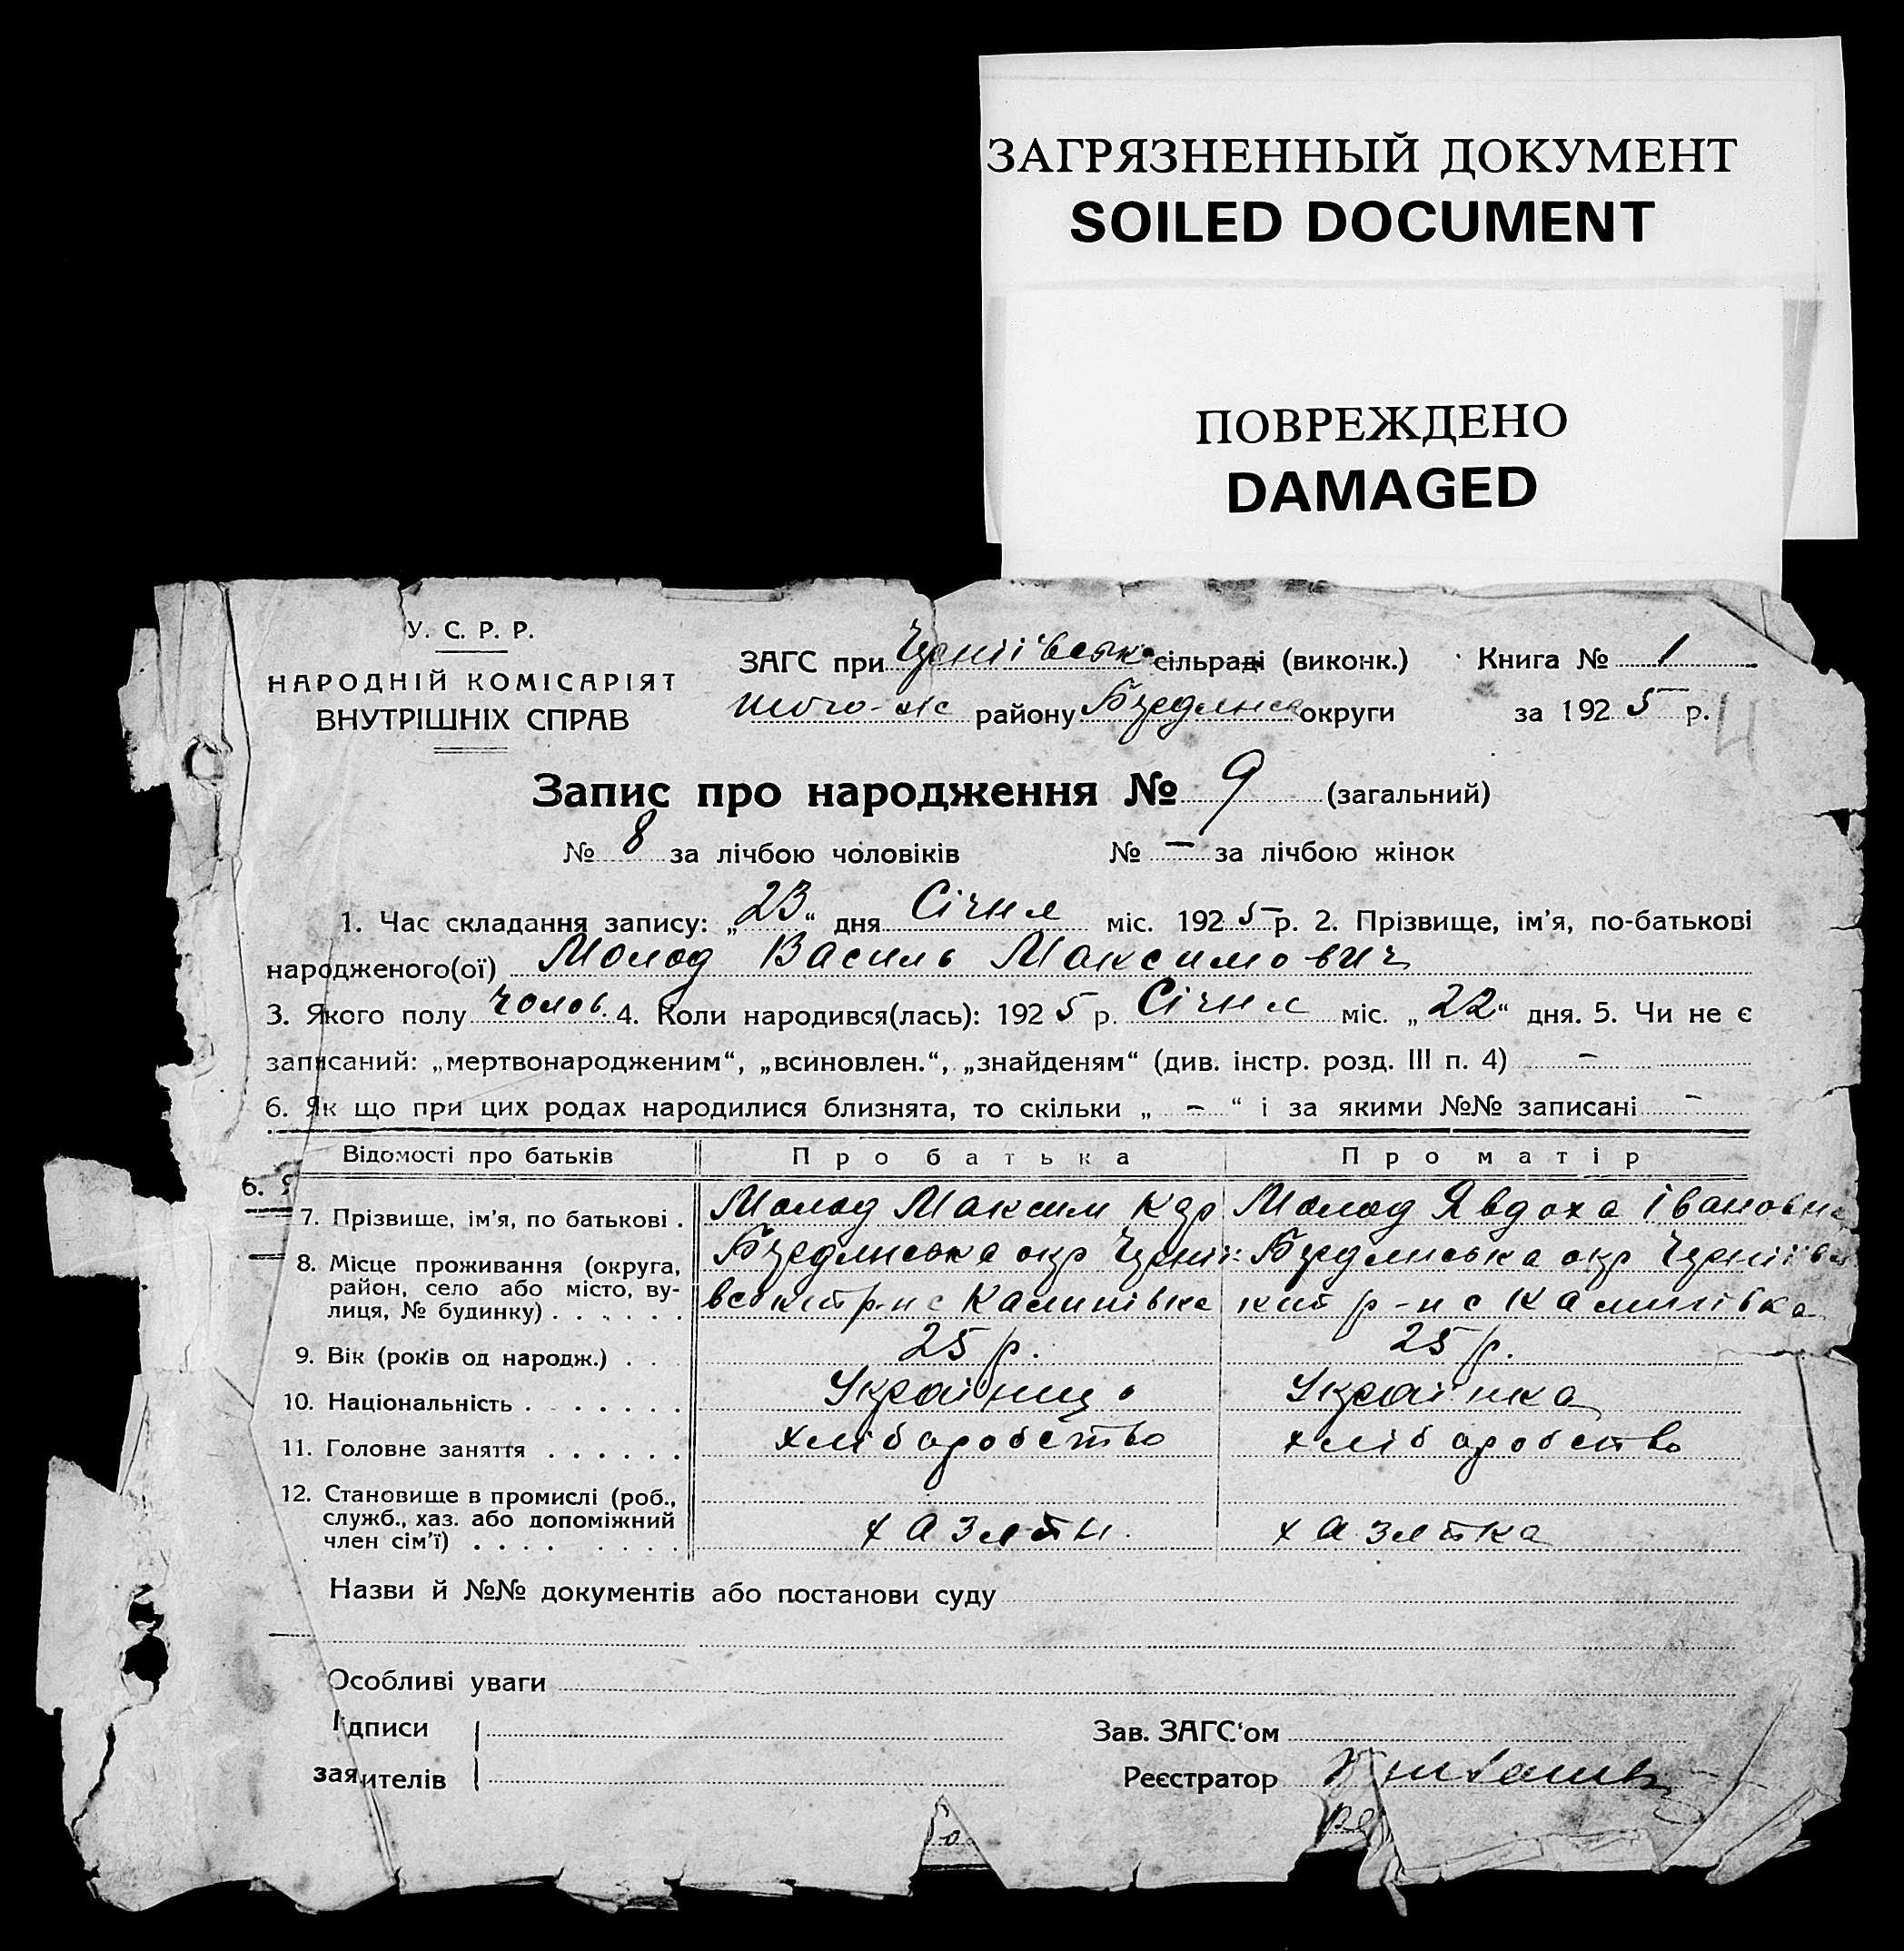 ЗАГРЯЗНЕННЫЙ ДОКУМЕНТ
SOILED DOCUMENT
ПОВРЕЖДЕНО
DAMAGED
У. С. Р. Р.
НАРОДНІЙ КОМІСАРІЯТ
ВНУТРІШНІХ СПРАВ
ЗАГС при сільраді (виконк.)
того-ж району округи
Книга № 1
за 1925 р.
Запис про народження № 9 (загальний)
№ 8 за лічбою чоловіків № – за лічбою жінок
1. Час складання запису: „23“ дня Січня міс. 1925 р. 2. Прізвище, ім’я, по-батькові
народженого(ої) Молод Василь Максимович
3. Якого полу чолов. 4. Коли народився(лась): 1925 р. Січня міс. „22“ дня. 5. Чи не є
записаний: „мертвонародженим“, „всиновлен.“, „знайденям“ (див. інстр. розд. III п. 4) –
6. Як що при цих родах народилися близнята, то скільки „ – “ і за якими №№ записані –
Відомості про батьків Про батька Про матір
7. Прізвище, ім’я, по батькові . Молод Максим Молод Явдоха Івановна
8. Місце проживання (округа, Бердянська окр Бердянська окр
район, село або місто, ву-
лиця, № будинку) . . . . . . р-н с Калинівка р-н с Калинівка
9. Вік (років од народж.) . . 25 р. 25 р.
10. Національність . . . . . . . Українць Українка
11. Головне заняття . . . . . . хліборобство хліборобство
12. Становище в промислі (роб.,
служб., хаз. або допоміжний
член сім’ї) . . . . . . . . хазяїн. хазяйка
Назви й №№ документів або постанови суду
Особливі уваги
дписи
заявителів
Зав. ЗАГС‘ом
Реєстратор